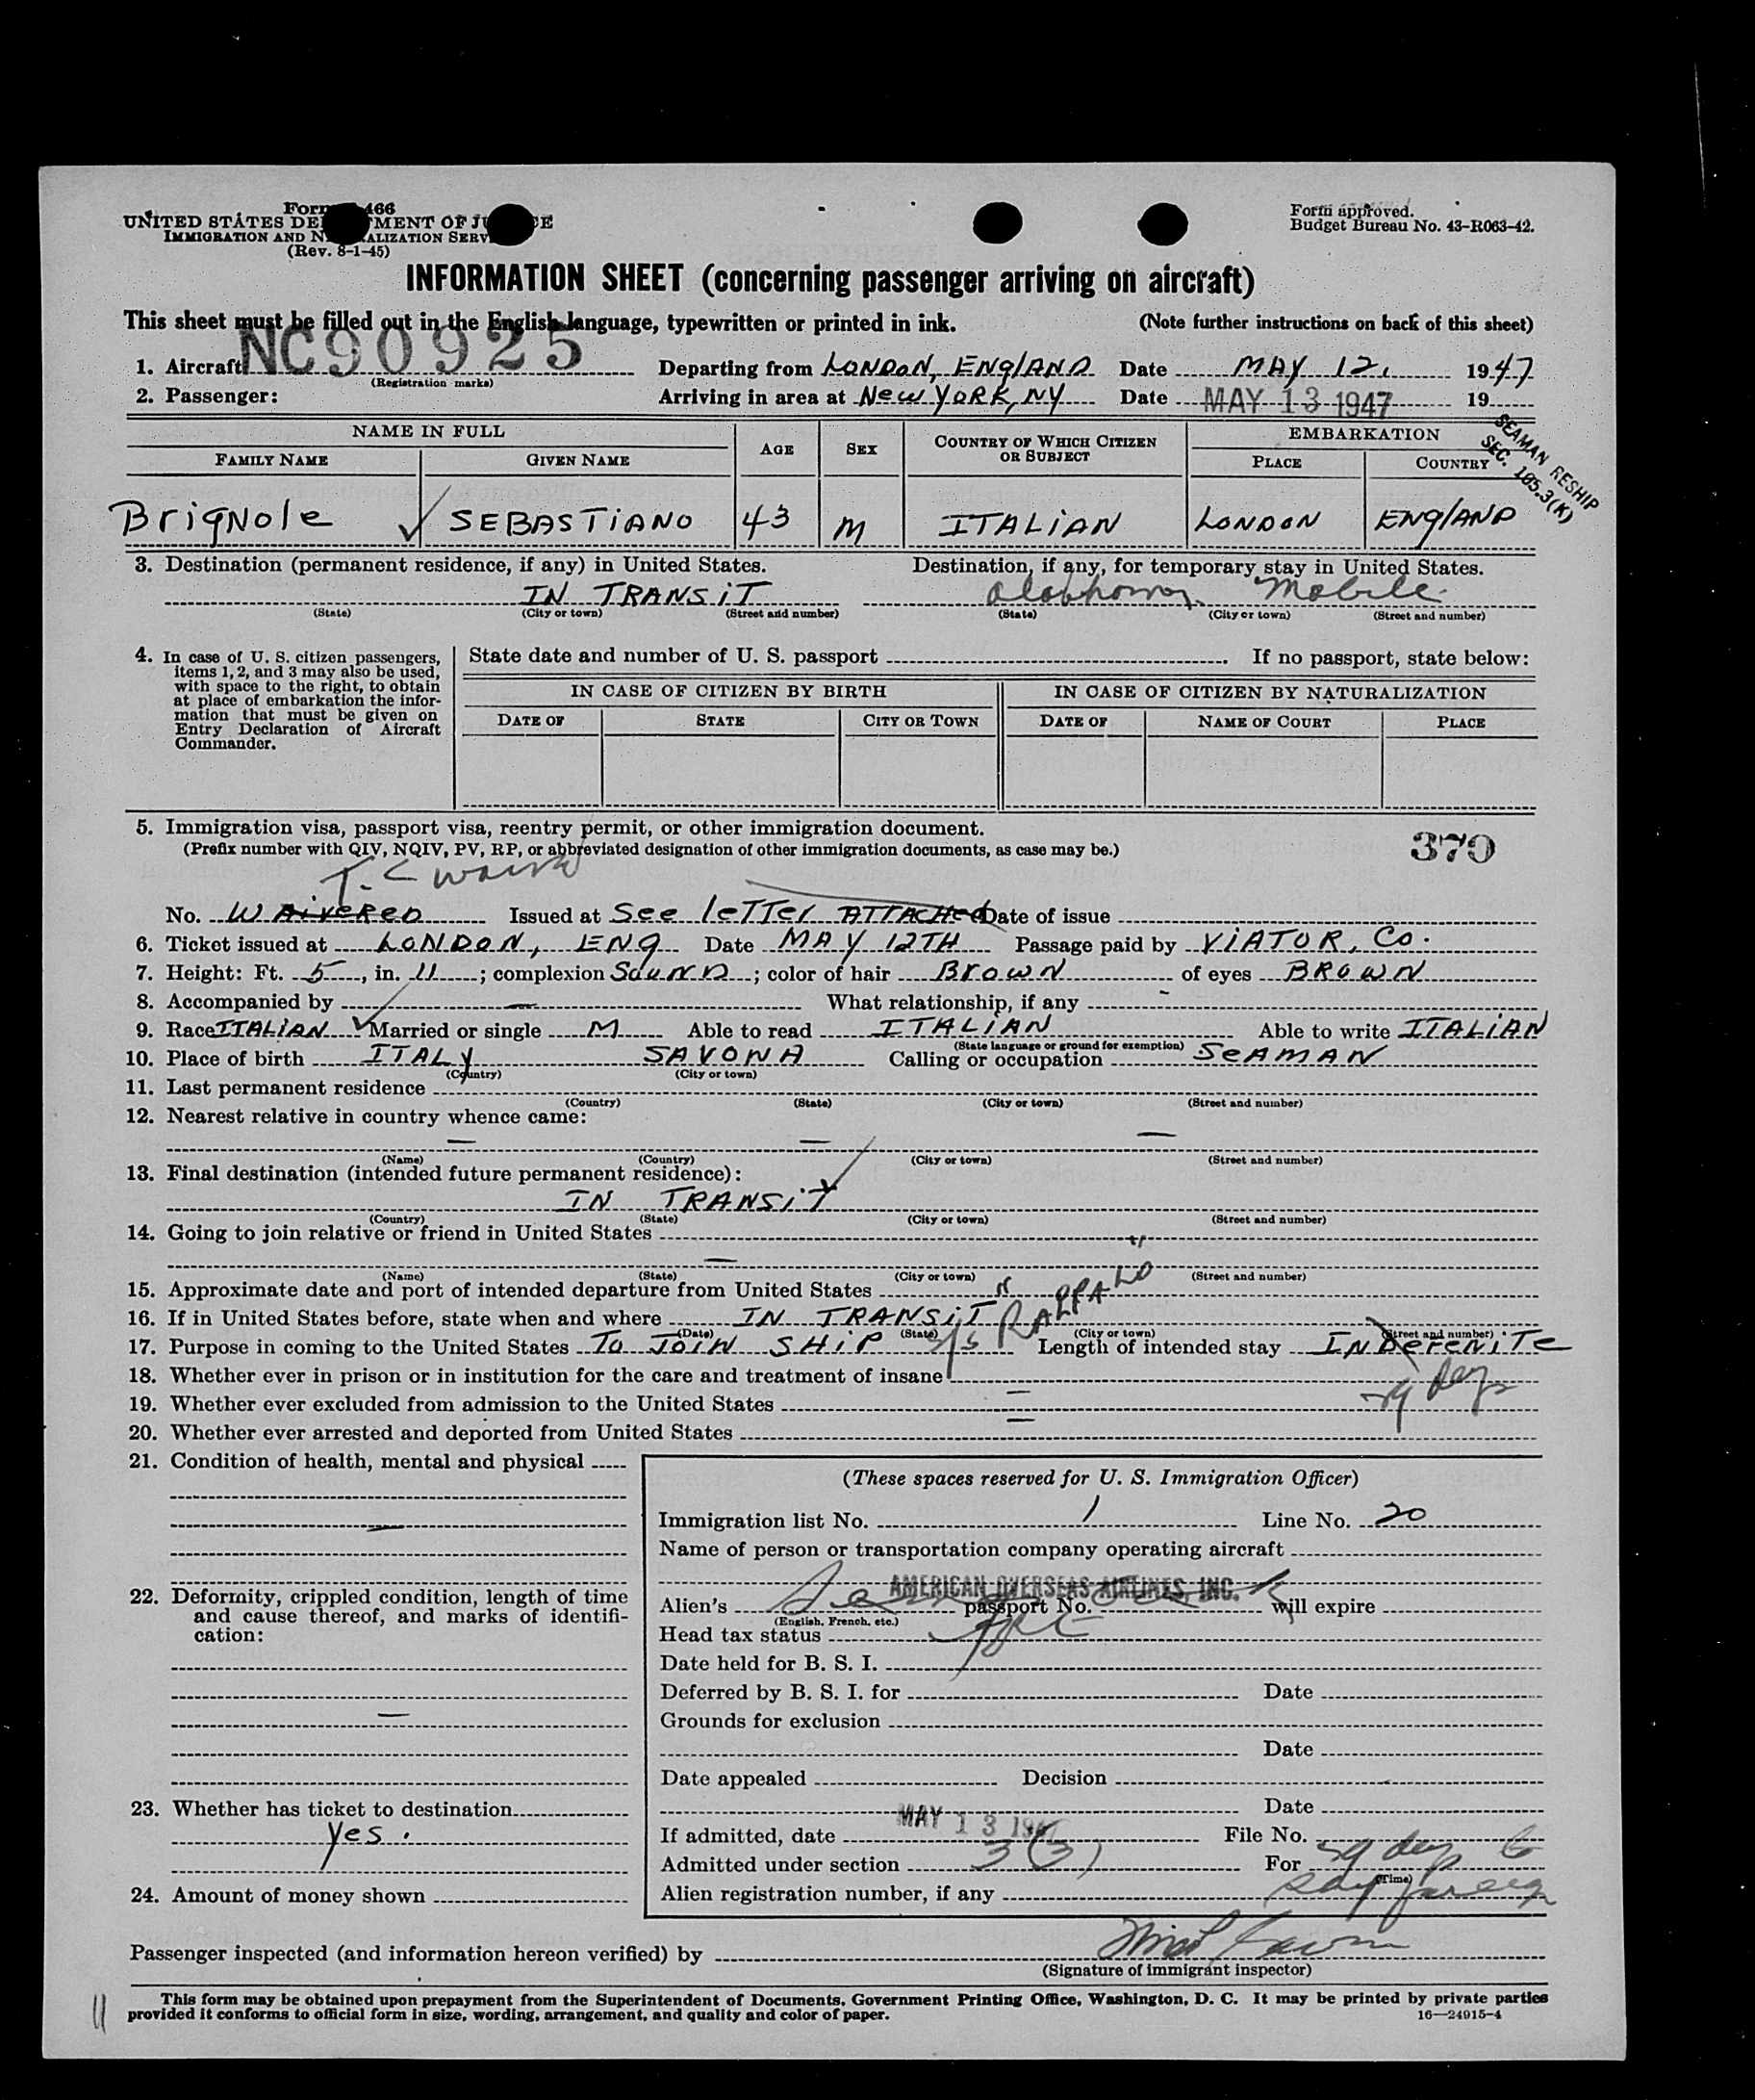 Form 466
UNITED STATES DE MENT OF JU E
IMMIGRATION AND N ALIZATION SERV
(Rev. 8-1-45)
Form approved.
Budget Bureau No. 43-R063-42.
INFORMATION SHEET (concerning passenger arriving on aircraft)
This sheet must be filled out in the English language, typewritten or printed in ink. (Note further instructions on back of this sheet)
1. Aircraft NC90925 Departing from LONDON, ENglAND Date MAY 12, 1947
(Registration marks)
2. Passenger: Arriving in area at New YORK, NY Date MAY 13 1947 19
SEAMAN RESHIP
SEC. 105.3(K)
NAME IN FULL AGE SEX COUNTRY OF WHICH CITIZEN OR SUBJECT EMBARKATION
FAMILY NAME GIVEN NAME PLACE COUNTRY
BrigNole SEBASTiANO 43 M ITALiAN LONDON ENglAND
3. Destination (permanent residence, if any) in United States. Destination, if any, for temporary stay in United States.
IN TRANSiT Mobile
(State) (City or town) (Street and number) (State) (City or town) (Street and number)
4. In case of U. S. citizen passengers, items 1, 2, and 3 may also be used, with space to the right, to obtain at place of embarkation the information that must be given on Entry Declaration of Aircraft Commander.
State date and number of U. S. passport If no passport, state below:
IN CASE OF CITIZEN BY BIRTH IN CASE OF CITIZEN BY NATURALIZATION
DATE OF STATE CITY OR TOWN DATE OF NAME OF COURT PLACE
5. Immigration visa, passport visa, reentry permit, or other immigration document. 379
(Prefix number with QIV, NQIV, PV, RP, or abbreviated designation of other immigration documents, as case may be.)
No. WAiVERED Issued at See leTTer ATTACHed Date of issue
6. Ticket issued at LONDON, ENG Date MAY 12TH Passage paid by ViATOR, Co.
7. Height: Ft. 5, in. 11; complexion SOUND; color of hair BrowN of eyes BROWN
8. Accompanied by — What relationship, if any -
9. Race ITALiAN Married or single M Able to read ITALiAN Able to write ITALiAN
(State language or ground for exemption)
10. Place of birth ITALY SAVONA Calling or occupation SeAMAN
(Country) (City or town)
11. Last permanent residence
(Country) (State) (City or town) (Street and number)
12. Nearest relative in country whence came:
— — —
(Name) (Country) (City or town) (Street and number)
13. Final destination (intended future permanent residence):
IN TRANSiT
(Country) (State) (City or town) (Street and number)
14. Going to join relative or friend in United States
—
(Name) (State) (City or town) (Street and number)
15. Approximate date and port of intended departure from United States
16. If in United States before, state when and where IN TRANSiT
(Date) (State) (City or town) (Street and number)
17. Purpose in coming to the United States To JOiN SHiP S/S "RAPPALO" Length of intended stay INDeFeNiTe
29 days
18. Whether ever in prison or in institution for the care and treatment of insane
19. Whether ever excluded from admission to the United States —
20. Whether ever arrested and deported from United States —
21. Condition of health, mental and physical
—
22. Deformity, crippled condition, length of time and cause thereof, and marks of identification:
—
23. Whether has ticket to destination
Yes.
24. Amount of money shown
(These spaces reserved for U. S. Immigration Officer)
Immigration list No. 1 Line No. 20
Name of person or transportation company operating aircraft
AMERICAN OVERSEAS AIRLINES, INC.
Alien's passport No. will expire
(English, French, etc.)
Head tax status
Date held for B. S. I.
Deferred by B. S. I. for Date
Grounds for exclusion
Date
Date appealed Decision
Date
If admitted, date MAY 13 1947 File No.
Admitted under section 3(3) For 29 days
(Time)
Alien registration number, if any
Passenger inspected (and information hereon verified) by
(Signature of immigrant inspector)
11
This form may be obtained upon prepayment from the Superintendent of Documents, Government Printing Office, Washington, D. C. It may be printed by private parties
provided it conforms to official form in size, wording, arrangement, and quality and color of paper. 16—24915-4